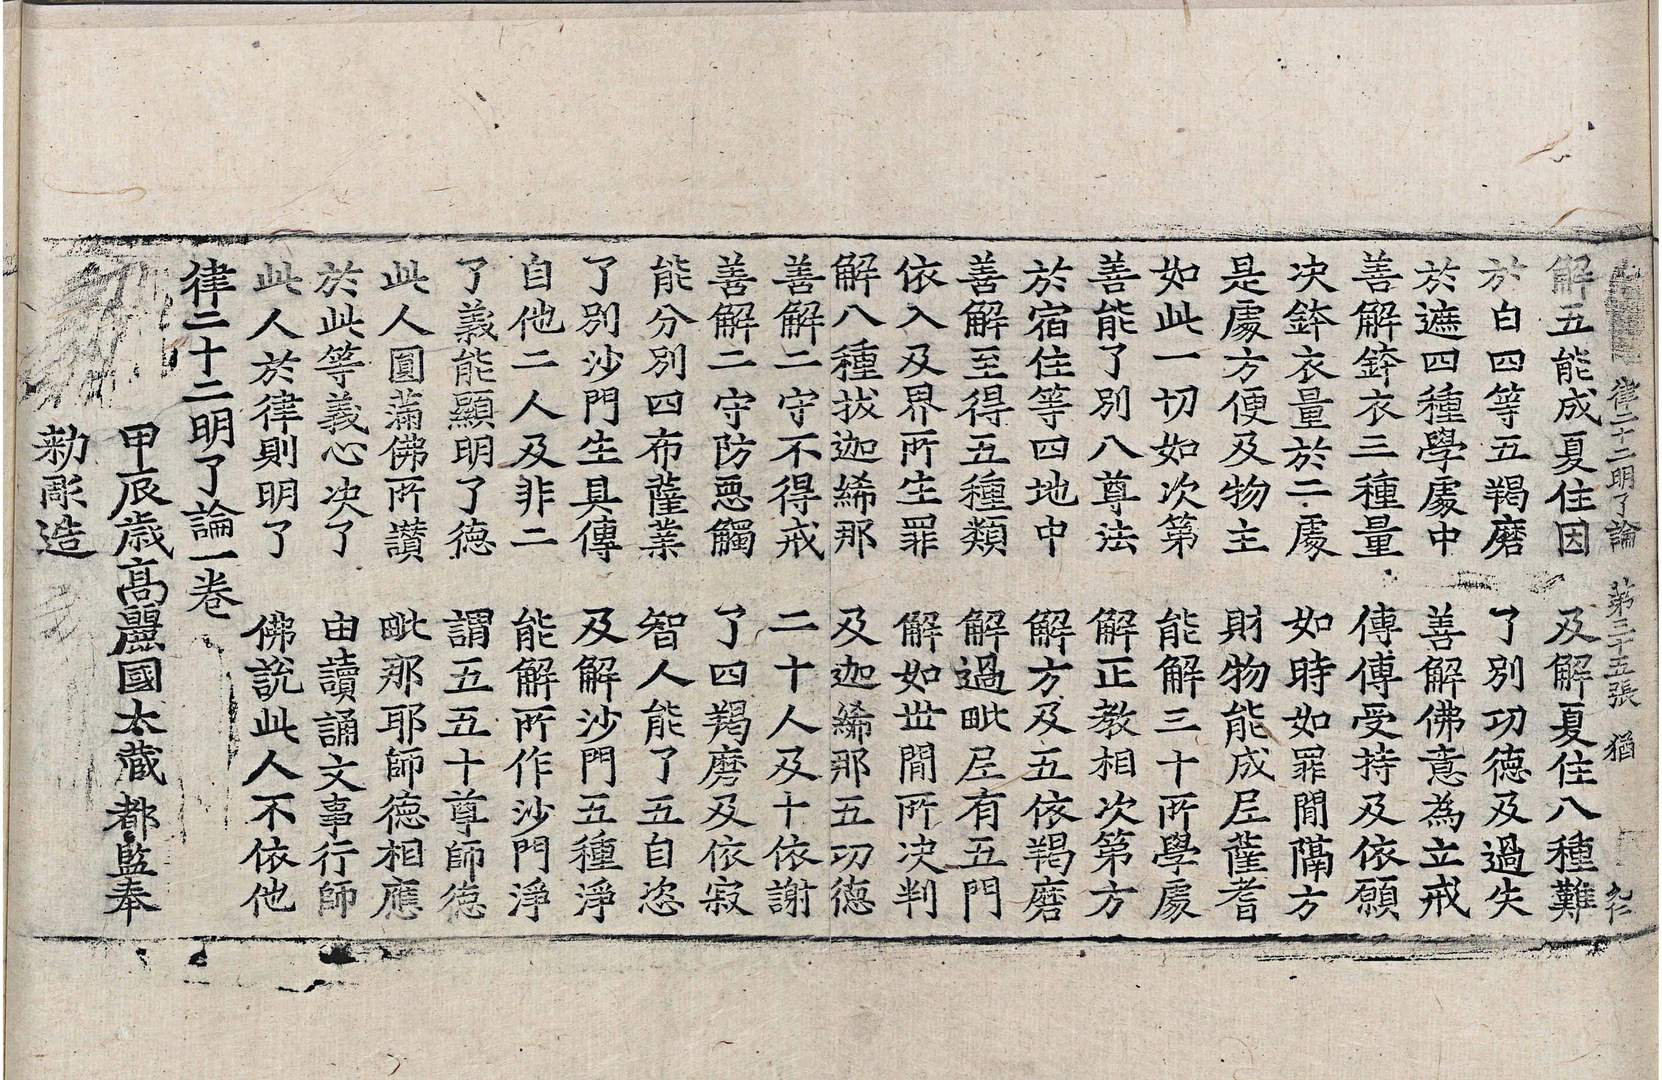 律二十二明了論 第三十五張 猶
解五能成夏住因 及解夏住八種難
於白四等五羯磨 了別功德及過失
於遮四種學處中 善解佛意為立戒
善解鉢衣三種量 傳傳受持及依願
决鉢衣量於二處 如時如罪間隔方
是處方便及物主 財物能成尼薩耆
如此一切如次第 能解三十所學處
善能了別八尊法 解正教相次第方
於宿住等四地中 解方及五依羯磨
善解至得五種類 解過毗尼有五門
依入及界所生罪 解如世間所决判
解八種拔迦絺那 及迦絺那五功德
善解二守不得戒 二十人及十依謝
善解二守防惡觸 了四羯磨及依寂
能分別四布薩業 智人能了五自恣
了別沙門生具傳 及解沙門五種淨
自他二人及非二 能解所作沙門淨
了義能顯明了德 謂五五十尊師德
此人圓滿佛所讃 毗那耶師德相應
於此等義心决了 由讀誦文事行師
此人於律則明了 佛說此人不依他
律二十二明了論一卷
甲辰歲高麗國大藏都監奉
勑彫造